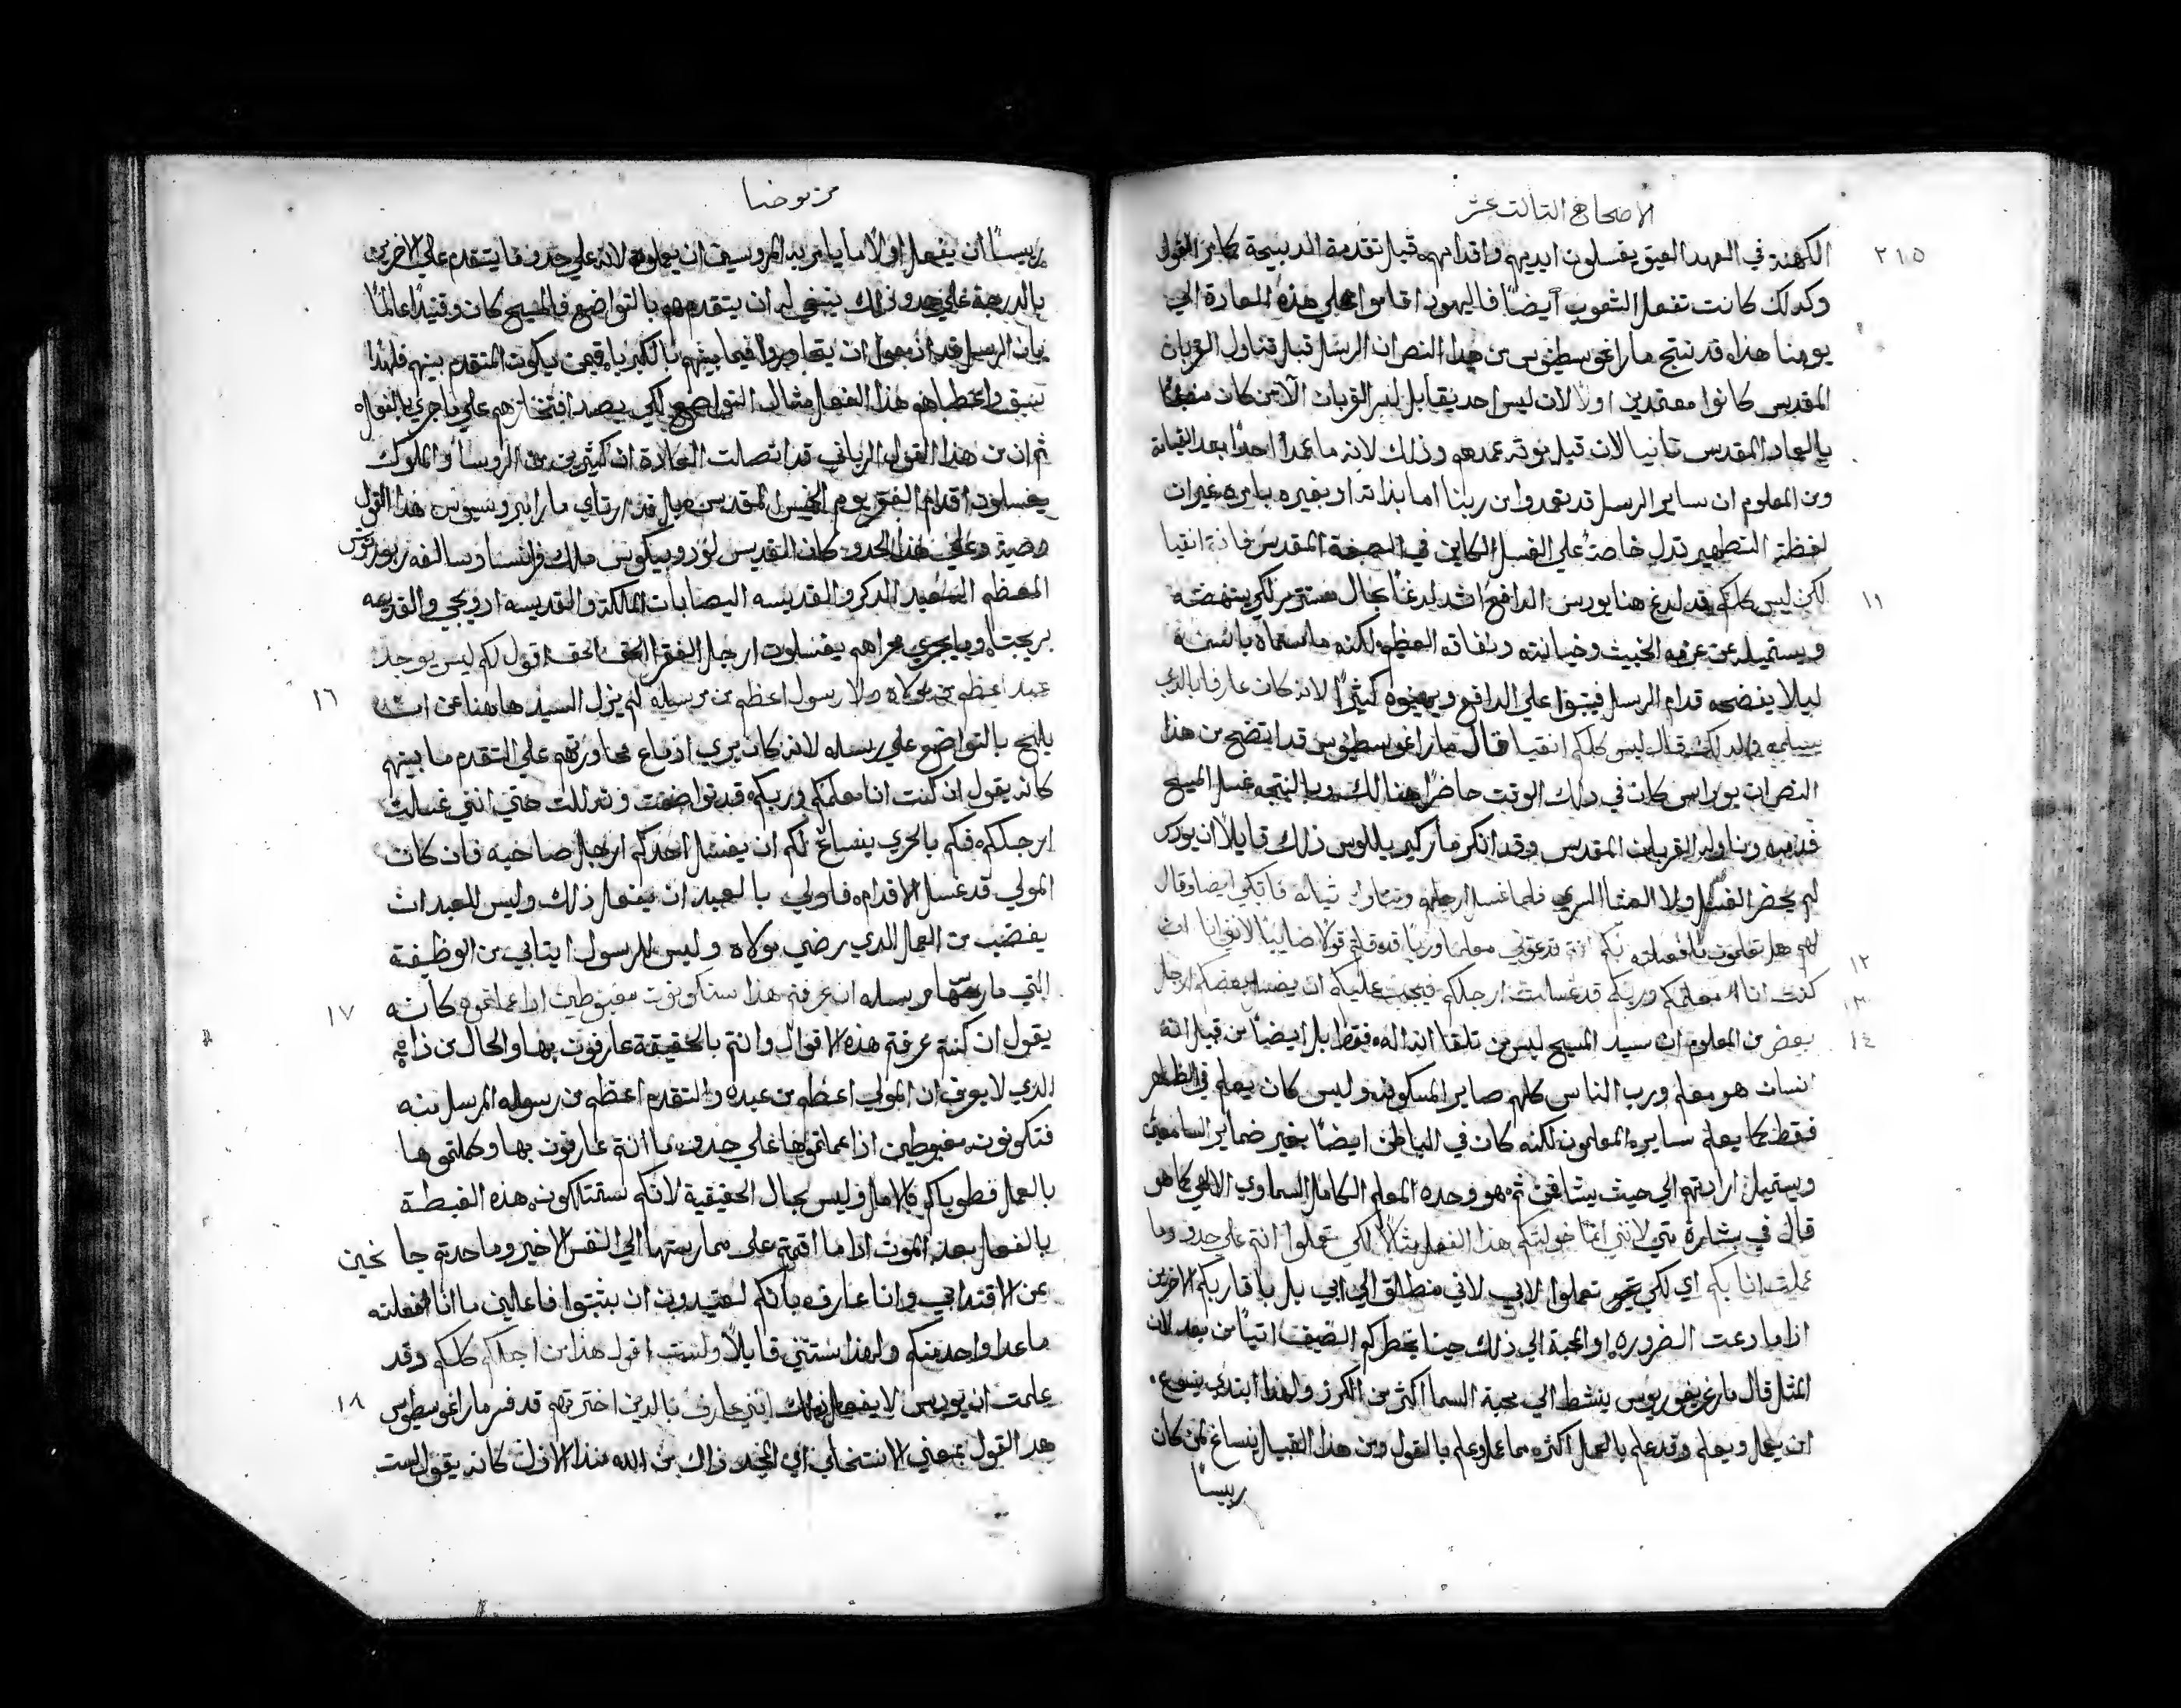 الاصحاح التالت عشر
٢١٥
الكهنة في العهد العتيق يغسلون ايديهم واقدامهم قبل تقدمة الدبيحة كامر القول
وكدلك كانت تفعل الشعوب ايضًا فاليهود اقاموا علي هذه العادة الي
يومنا هذا، قد نتج مار اغوسطينوس من هدا النص ان الرسل قبل تناول القربان
المقدس كانوا معتمدين اولًا لان ليس احد يقابل لسر القربان الا من كان
بالعماد المقدس تانيا لان قبل موته عمدهم وذلك لانه ما عمد احدًا بعد القيامة
ومن المعلوم ان ساير الرسل قد تعمدوا من ربنا اما بذاته او بغيره بامره غير ان
لفظة التطهير تدل خاصةً علي الغسل الكاين في المقدس انقيا
١١
لكن ليس كلكم قد لدغ هنا يودس الدافع اشد لدغًا بحال مستتر لكي ينهضه
ويستميله عن عزمه الخبيث وخيانته ونفاقه العظيم لكنه ما سماه باسمه
ليلا يفضحه قدام الرسل فيثبوا علي الدافع ويهينوه كثيرًا لانه كان عارفا بالدي
يسلمه ولدلك قال ليس كلكم انقيا قال مار اغوسطينوس قد اتضح من هذا
النص ان يوداس كان في دلك الوقت حاضرًا هنالك وبالنتيجه غسل المسيح
قدميه وناوله القربان المقدس وقد انكر مار كيرياللوس ذلك قايلًا ان يودس
لم يحضر الغسل ولا العشا السري فلما غسل ارجلهم وتناول ثيابه فاتكي ايضا وقال
١٢
لهم هل تعلمون ما فعلته بكم انتم تدعوني معلما وربًا قد قلتم قولًا صايبًا لانني انا ان
١٣
كنت انا معلمكم وربكم قد غسلت ارجلكم فيجب عليكم ان يغسل بعضكم ارجل
١٤
بعض من المعلوم ان سيد المسيح ليس من تلقا انه اله فقط بل ايضًا من قبل انه
انسان هو معلم ورب الناس كلهم ساير المسكونه وليس كان يعلم في الظاهر
فقط كما يعلم سايره المعلمون لكنه كان في الباطن ايضًا بخير ضماير السامعين
ويستميل ارادتهم الي حيث يشا فمن ثم هو وحده المعلم الكامل السماوي الالهي كما هو
قال في بشارة متي لانني انما خولتكم هذا الفعل مثالًا لكي تعملوا انتم علي حدو وما
عملت انا بكم اي لكي تعملوا لا بي لاني منطلق الي ابي بل باقاربكم الاخرين
اذا ما دعت الضروره او المحبة الي ذلك حينا يخطر لكم الضيف اتيًا من بعد لان
المثل قال مار غريغوريوس ينشط الي محبة السما اكثر من الكرز ولهذا ابتدي يسوع
ان يعمل ويعلم وقد علم بالعمل اكثر مما علم بالقول ومن هذا القبيل ينساغ لمن كان
ريسًا
من يوحنا
ريسًا ان يفعل اولًا ما يامر به المروسين ان يعملوه لانه علي حدو ما يتقدم علي الاخرين
بالدرجة علي حدو ذلك ينبغي له ان يتقدمهم بالتواضع فالمسيح كان وقتيدًا عالمًا
بان الرسل قد ازمعوا ان يتحاوروا فيما بينهم بالكبريا، فيمن يكون المتقدم بينهم فلهذا
سبق واعطاهم هذا الفعل مثال التواضع لكي يصد افتخارهم علي ما جري بالقوله
ثم ان من هذا القول الرباني قد اتصلت العادة ان كثيرين من الروسا والملوك
يغسلون اقدام الفقر يوم الخميس المقدس بل قد ارتاي مار امبروسيوس هذا القول
وصية وعلي هذا الحدو كان القديس لودوبيكوس ملك فرانسا وسالفه روبرتوس
المعظم السعيد الدكر والقديسه اليصابات المالكة والقديسه ادويجي والقديسه
بريجتا، وما يجري مجراهم يغسلون ارجل الفقرا الحق الحق اقول لكم ليس يوجد
١٦
عبد اعظم من مولاه ولا رسول اعظم من مرسله لم يزل السيد هاهنا عن ان
يلهج بالتواضع علي رسله لانه كان يري ازماع محاورتهم علي التقدم ما بينهم
كانه يقول ان كنت انا معلمكم وربكم قد تواضعت وتدللت حتي انني غسلت
ارجلكم، فكم بالحري ينساغ لكم ان يغسل احدكم ارجل صاحبه فان كان
المولي قد غسل الاقدام، فاولي بالعبيد ان يفعل ذلك وليس للعبد ان
يغضب من العمل الدي رضي مولاه وليس للرسول ان يتابي من الوظيفة
١٧
التي مارسها مرسله ان عرفتم هذا ستكونون مغبوطين اذا عملتموه كانه
يقول ان كنتم عرفتم هذه الاقوال وانتم بالحقيقة عارفون بها والحال من ذا
الدي لا يعرف ان المولي اعظم من عبده والمتقدم اعظم من رسوله المرسل منه
فتكونون مغبوطين اذا عملتموها علي حدو ما انتم عارفون بها وكملتموها
بالعمل فطوباكم بالامل وليس بحال الحقيقية لانكم ستمتلكون هذه الغبطة
بالفعل بعد الموت اذا ما اقمتم علي ممارستها الي النفس الاخير وما حدتم جانحين
عن الاقتدا بي وانا عارف بانكم لعتيدون ان يثبتوا فاعلين ما انا افعلته
ماعدا واحد منكم ولهذا ستثني قايلًا ولست اقول هذا من اجلكم كلكم وقد
١٨
علمت ان يودس لا يفعل ذلك انني عارف بالدين اخترتهم قد فسر مار اغوسطينوس
هدا القول بمعني الانتخاب الي المجد ذاك من الله منذ الازل كانه يقول لست